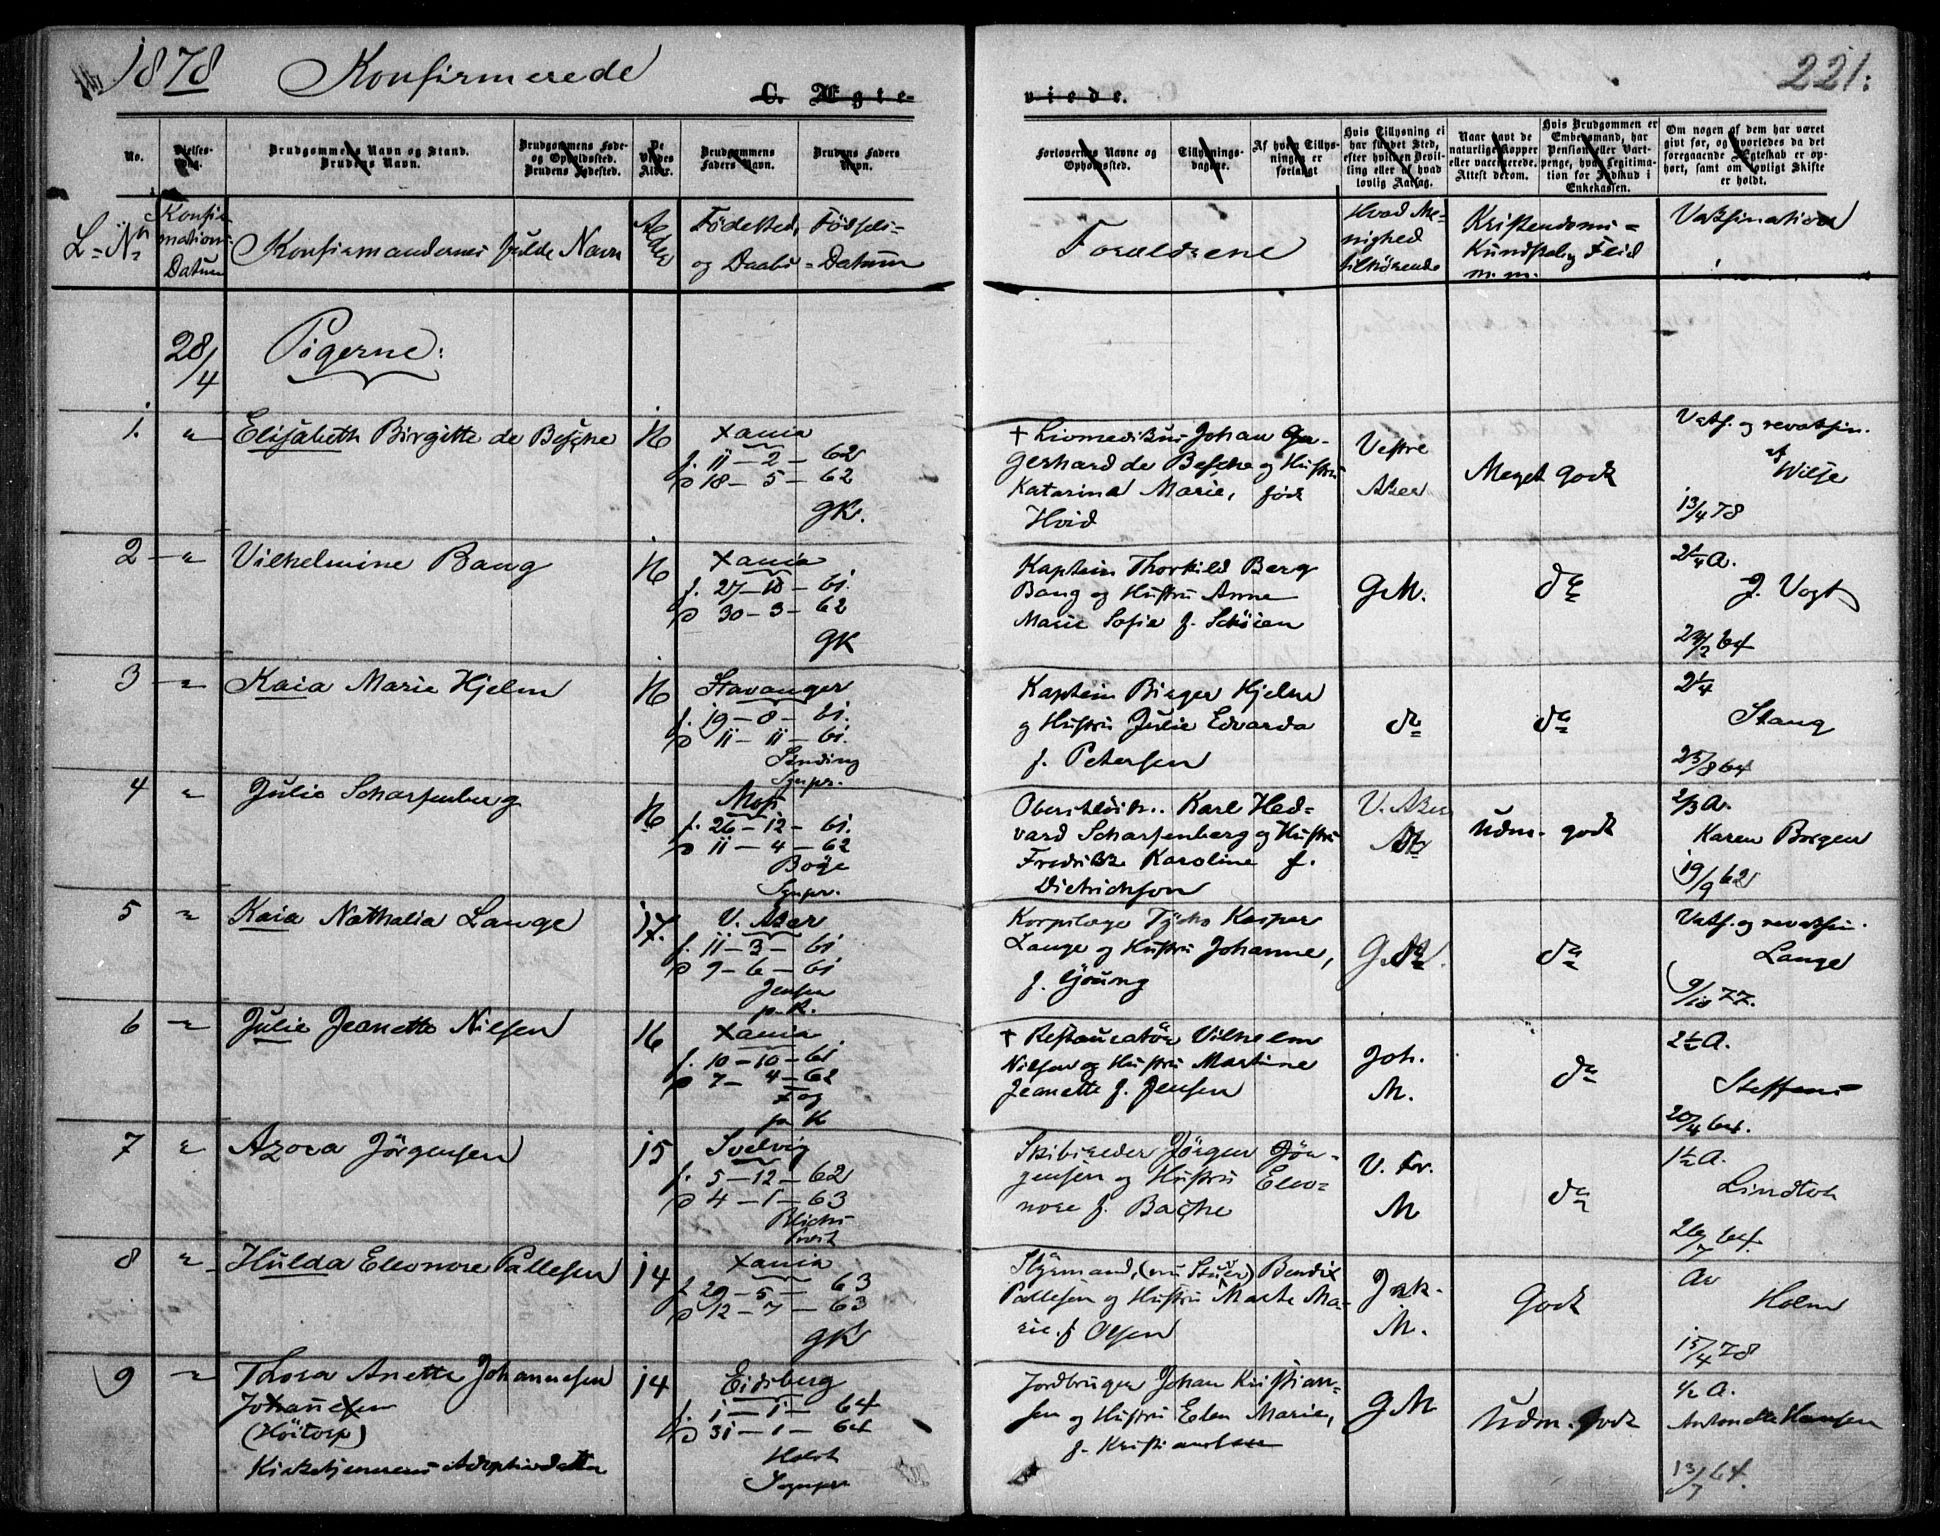 1878 Konfirmerede
C. Ægte-
viede.
221.
No.
Vielses-
dag.
Brudgommens Navn og Stand.
Brudens Navn.
Brudgommens Føde-
og Opholdssted.
Brudens Fødested.
De
Viedes
Alder.
Brudgommens
Faders Navn.
Brudens Faders
Navn.
Forlovernes Navne og
Opholdssted.
Tillysnings-
dagene.
Af hvem Tillys-
ningen er
forlangt
Hvis Tillysning ei
har fundet Sted,
efter hvilken Bevil-
ling eller af hvad
lovlig Aarsag.
Naar havt de
naturlige Kopper
eller vaccinerede.
Attest derom.
Hvis Brudgommen er
Embedsmand, har
Pension eller Vart-
penge, hvad Legitima-
tion for Indskud i
Enkekassen.
Om nogen af dem har været
gift før, og hvorledes da det
foregaaende Ægteskab er op-
hørt, samt om lovligt Skifte
er holdt.
L-Nr
Konfir-
mations-
Datum
Konfirmandernes fulde Navn
Alder
Fødested, Fødsels-
og Daabs-Datum
Forældrene
Hvad Me-
nighed
tilhørende
Kristendoms-
Kundskab og Flid
m.m.
Vaksination
28/4
Pigerne:
1. " Elisabeth Birgitte de Besche 16
Xania
f. 11-2-62
D 18-5-62
GK.
† Livmedikus Johan
Gerhard de Besche og Hustru
Katarina Marie, født
Hvid
Vestre
Aker
Meget godt
Vaks. og revaksin.
af
Wilse
13/4 78
2 " Vilhelmine Bang 16
Xania
f. 27-10-61.
D 30-3-62
GK
Kaptein Thorkild Berg
Bang og Hustru Anne
Marie Sofie f. Schøien
G.M.
do
J. Vogt
3 " Kaia Marie Hjelm 16
Stavanger
f. 19-8-61.
D 11-11-61.
Sanding
Sgnpr.
Kaptein Birger Hjelm
og Hustru Julie Edvarda
f. Petersen
do
do
Stang
25/8 64
4 " Julie Scharfenberg 16
Moss
f. 26-12-61.
D 11-4-62
Bøge
Sgnpr.
Oberstløitn. Karl Hed-
vard Scharfenberg og Hustru
Fredrikke Karoline f.
Dietrichson
V. Aker
Udm. godt
Karen Borgen
19/9 62
5 " Kaia Nathalia Lange 17.
V. Aker
f. 11-3-61
D 9-6-61
Jensen
p.K.
Korpslæge Tycho Kasper
Lange og Hustru Johanne,
f. Gjöung
do
Vaks. og revaksin.
Lange
9/10 77.
6 " Julie Jeanette Nilsen 16
Xania
f. 10-10-61
D 7-4-62
† Restauratør Vilhelm
Nilsen og Hustru Martine
Jeanette f. Jensen
Joh.
M.
do
2½ A.
Steffens
20/4 64.
7 " Azora Jørgensen 15
Svelvig
f. 5-12-62
D 4-1-63
Prost
Skibsreder Jørgen Jør-
gensen og Hustru Eleo-
nore f. Bache
V. Fr.
M
do
1½ A.
26/7 64.
8 " Hulda Eleonore Pallesen 14
Xania
f. 29-5-63
D 12-7-63
GK
Styrmand, (nu Stuer) Bendix
Pallesen og Hustru Marte Ma-
rie f. Olsen
Jak.
M.
Godt
Av
Holm
15/4 78
9 " Thora Anette Johannesen 14
(Høitorp)
Kirketjenerens Adoptivdatter
Eidsberg
f. 1-1-64
D 31-1-64
Holst
Sognpr
Jordbruger Johan Kristian-
sen og Hustru Elen Marie,
f. Kristiansen
G.M
Udm. Godt
½ A.
Antonette Hansen
13/7 64.